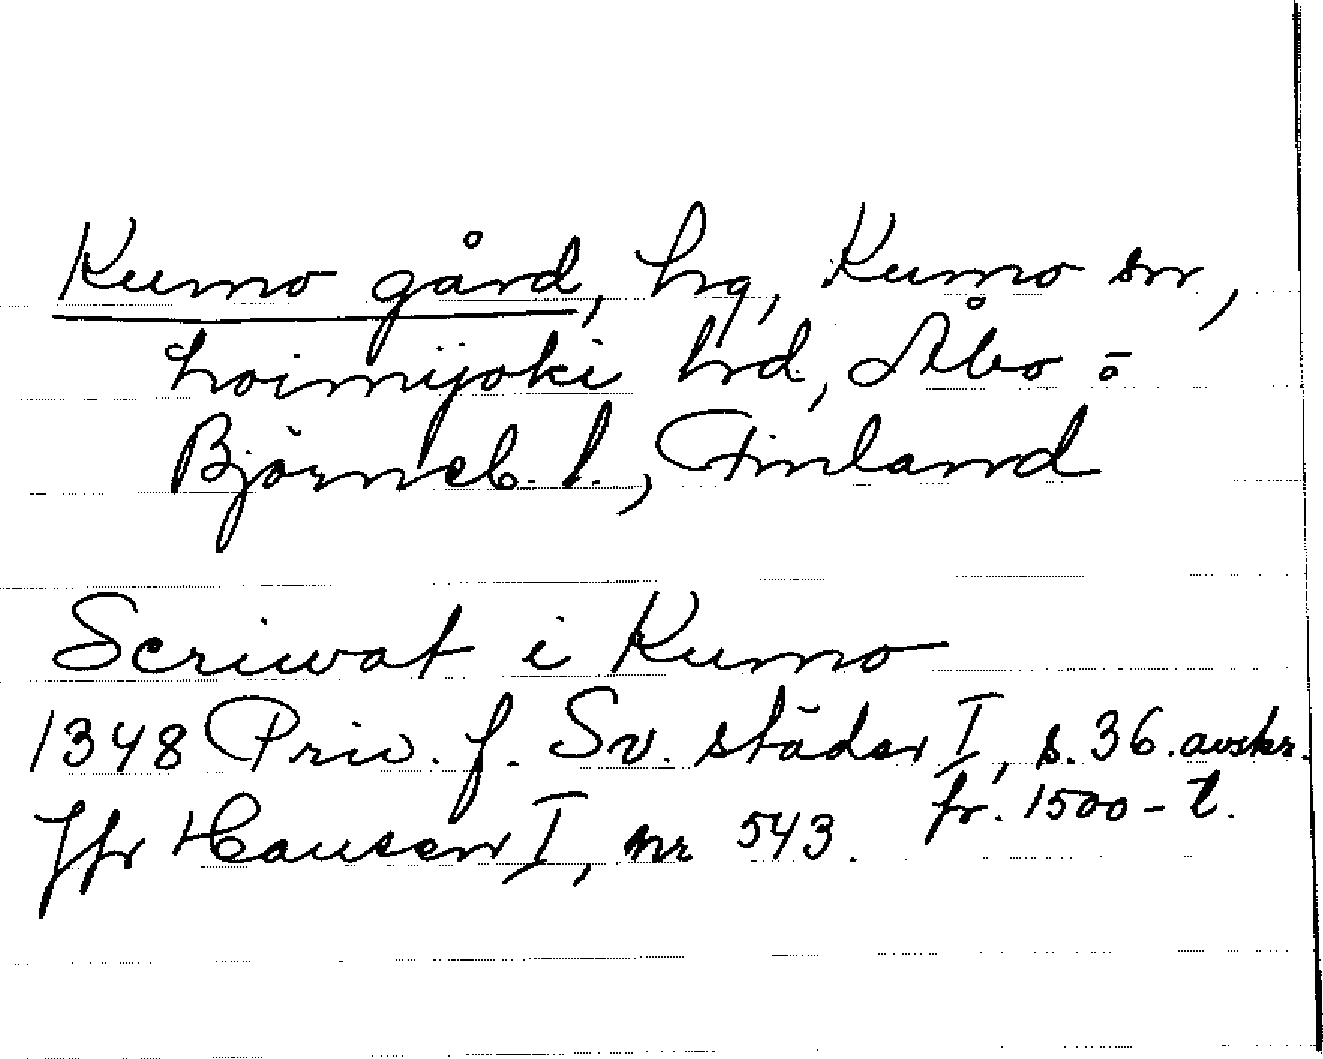 Kumo gård, hg, Kumo sn,
Loimijoki hd, Åbo-
Björneb. l., Finland
Scriwat i Kumo
1348 Priv. f. Sv. städer I, s. 36. avskr.
fr. 1500-t.
Jfr Hausen I, nr 543.